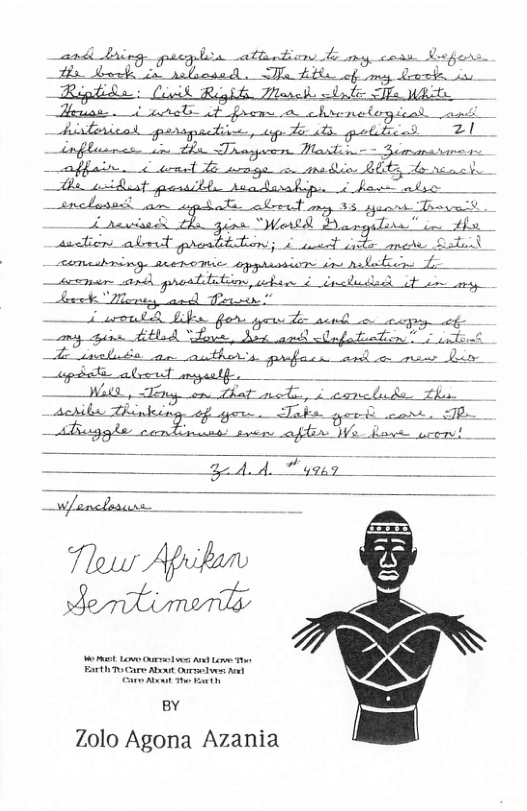 and bring people's attention to my case before
the book is released. The title of my book is
Riptide: Civil Rights March Into The White
House. i wrote it from a chronological and
historical perspective, up to its political 21
influence in the Trayvon Martin -- Zimmerman
affair. i want to wage a media blitz to reach
the widest possible readership. i have also
enclosed an update about my 33 years travail.
i revised the zine "World Gangsters" in the
section about prostitution; i went into more detail
concerning economic oppression in relation to
women and prostitution, when i included it in my
book "Money and Power."
i would like for you to send a copy of
my zine titled "Love, Sex and Infatuation". i intend
to include an author's preface and a new bio
update about myself.
Well, Tony on that note, i conclude this
scribe thinking of you. Take good care. The
struggle continues even after We have won!
Z.A.A. #4969
w/enclosure
New Afrikan
Sentiments
We Must Love Ourselves And Love The
Earth To Care About Ourselves And
Care About The Earth
BY
Zolo Agona Azania